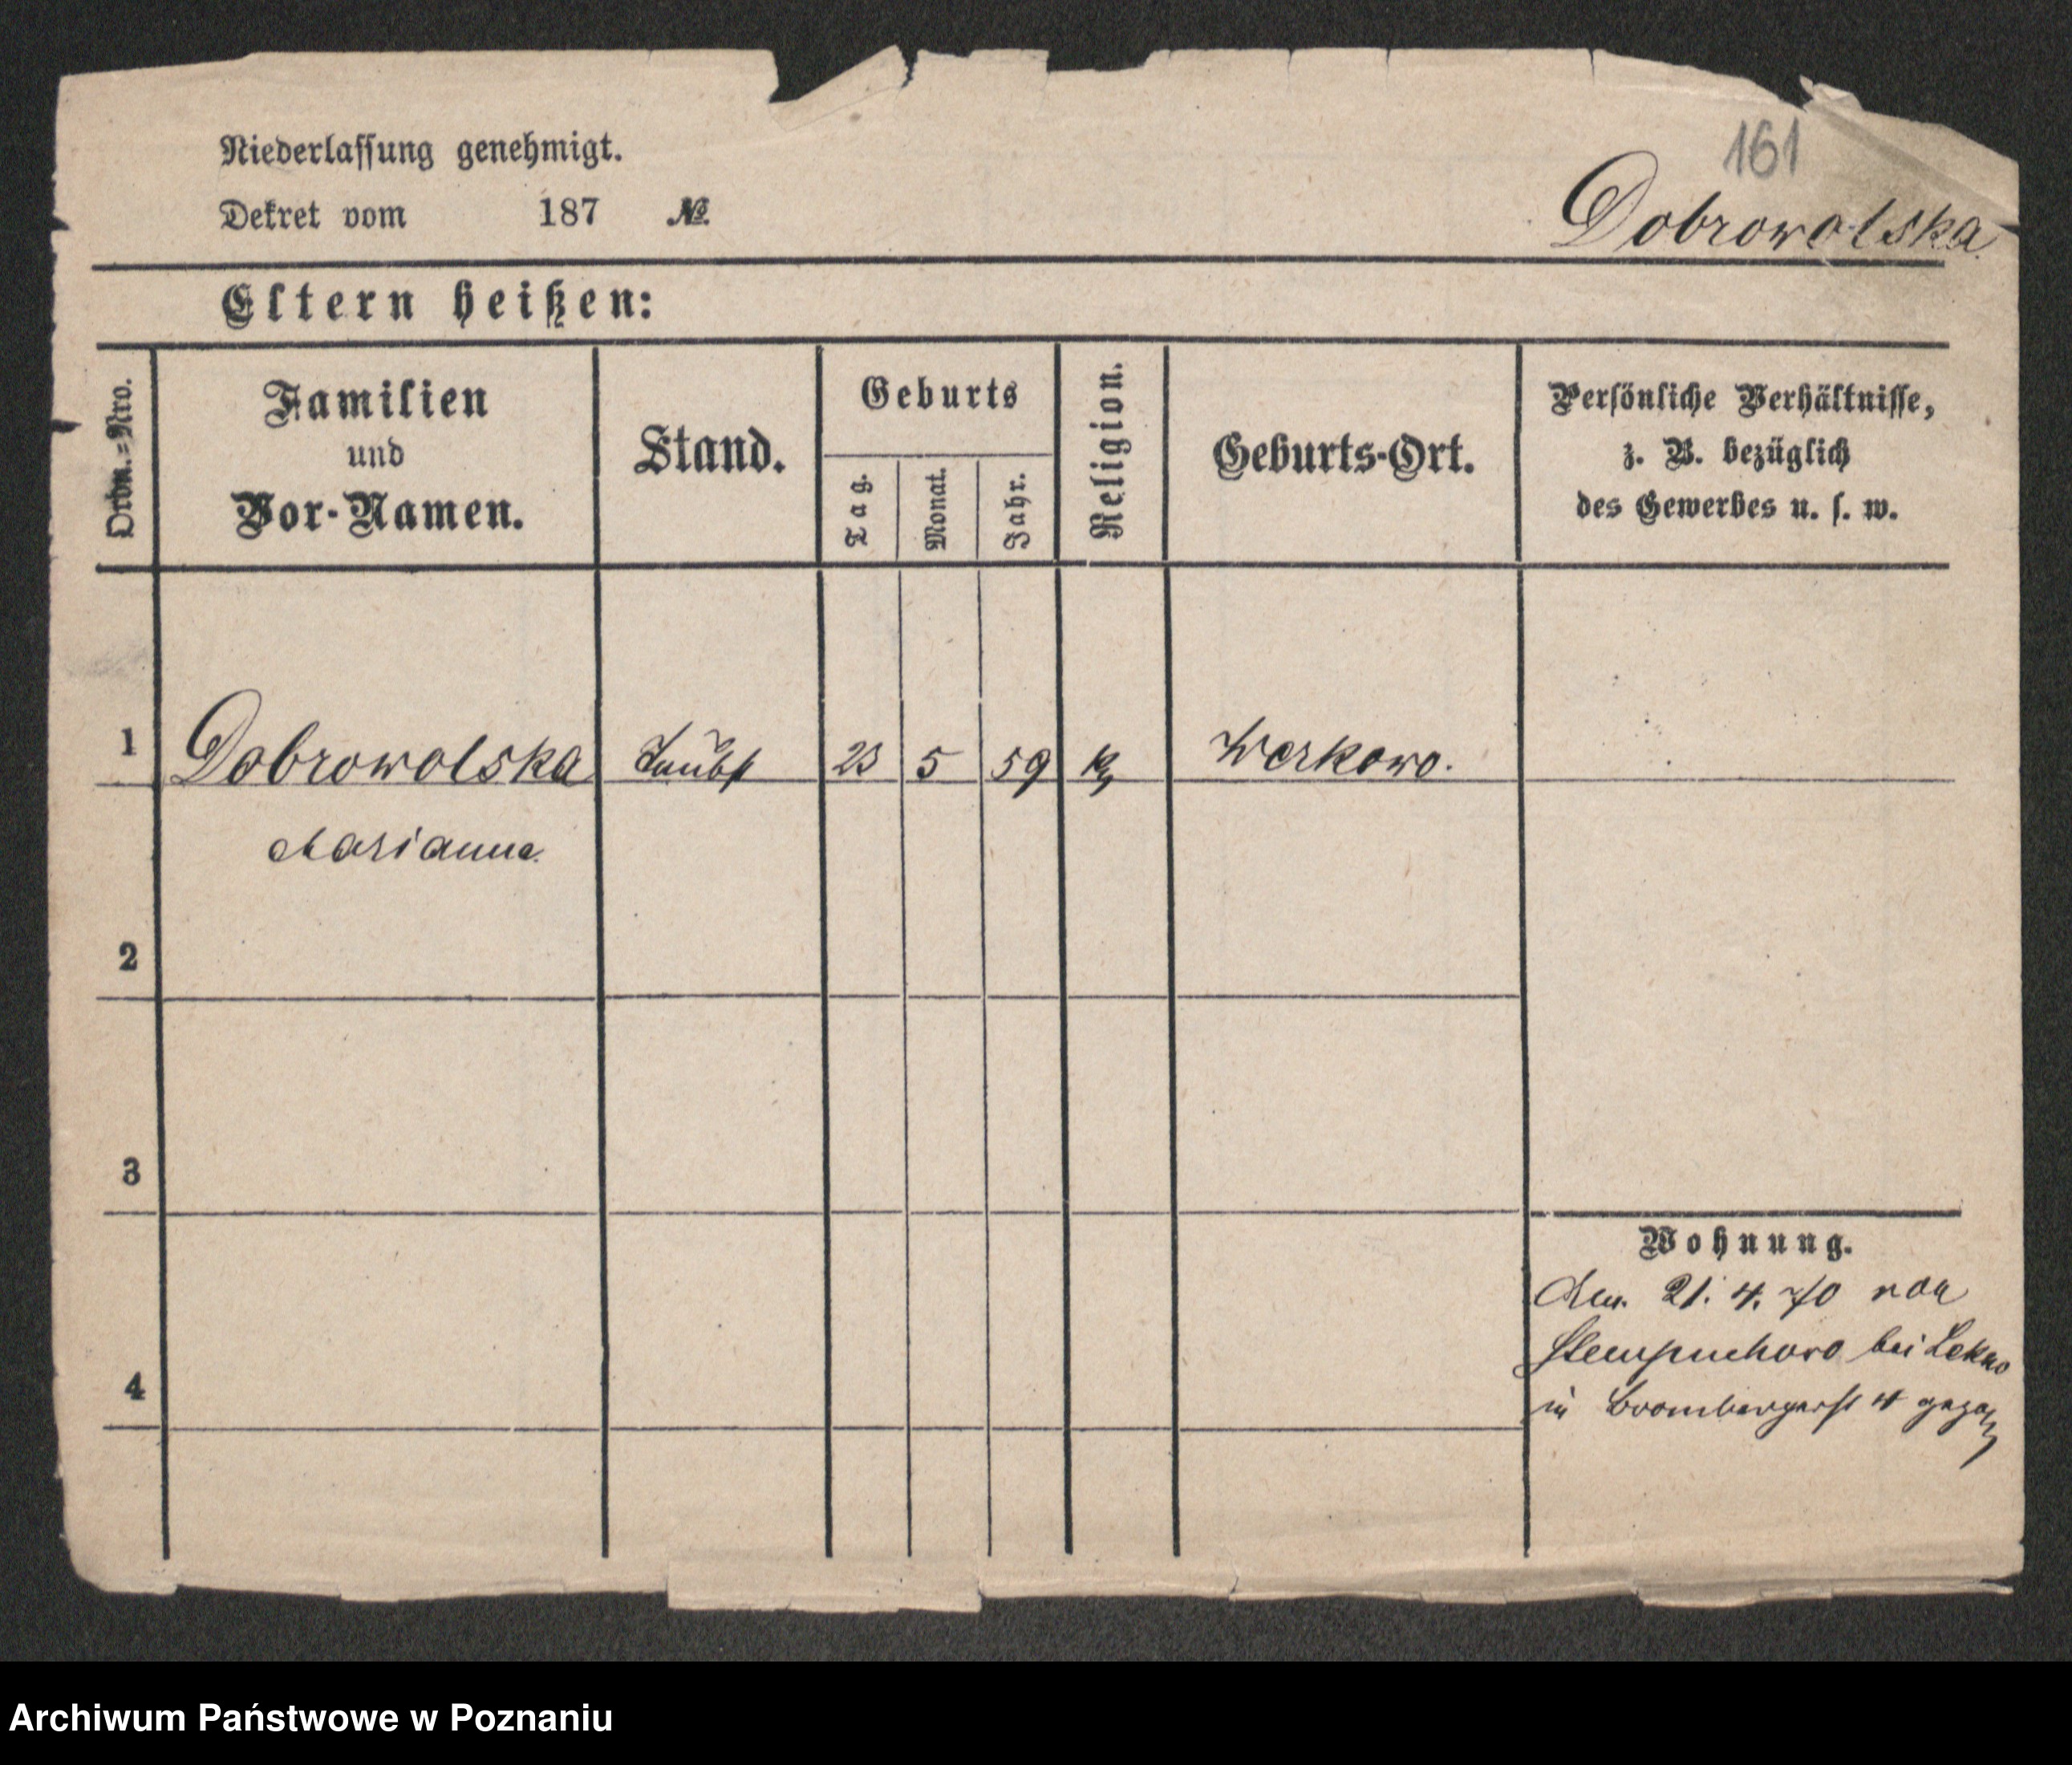 161
Niederlassung genehmigt.
Dekret vom 187 №
Dobrowolska
Eltern heißen:
Ordn.-Nro.
Familien
und
Vor-Namen.
Stand.
Geburts
Tag.
Monat.
Jahr.
Religion.
Geburts-Ort.
Persönliche Verhältnisse,
z. B. bezüglich
des Gewerbes u. s. w.
1 Dobrowolska 23 5 59 k Werkowo.
Marianna.
2
3
Wohnung.
21. 4. 70 von
Stempuchowo bei Lekno
in Brombergerst 4 gezog
4
Archiwum Państwowe w Poznaniu